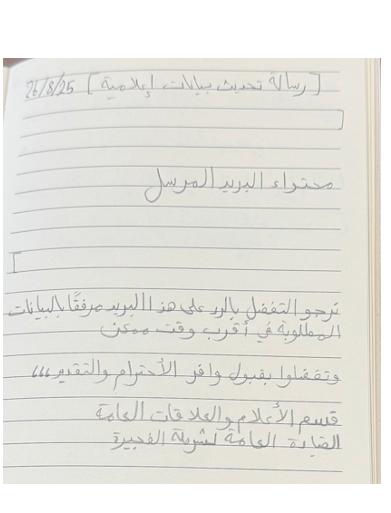 [رسالة تحديث بيانات إعلامية] 26/8/25
محتواء البريد المرسل
نرجو التفضل بالرد على هذا البريد مرفقًا بالبيانات
المطلوبة في أقرب وقت ممكن
وتفضلوا بقبول وافر الأحترام والتقدير،،،
قسم الأعلام والعلاقات العامة
القيادة العامة لشرطة الفجيرة